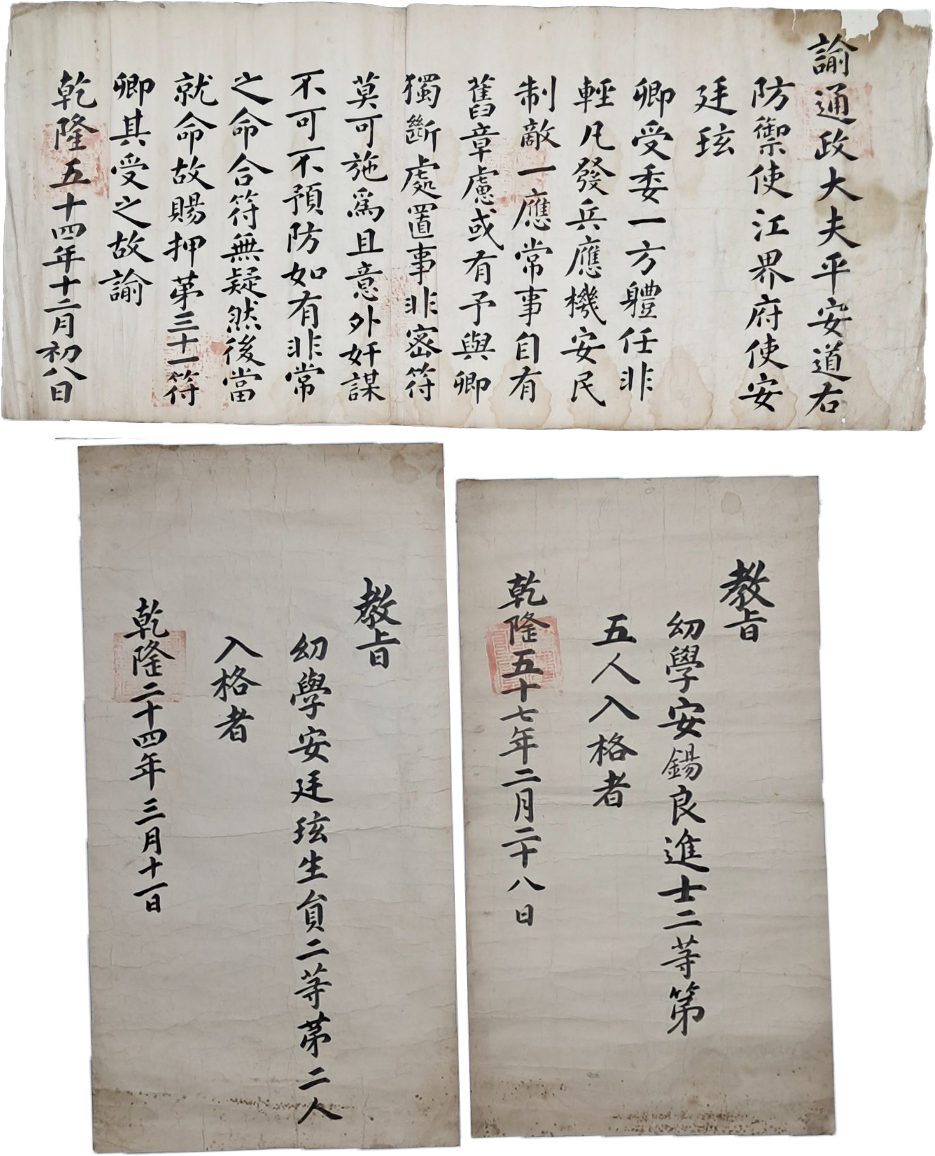 諭通政大夫平安道右
防禦使江界府使安
廷玹
卿受委一方軆任非
輕凡發兵應機安民
制敵一應常事自有
舊章慮或有予與卿
獨斷處置事非密符
莫可施爲且意外奸謀
不可不預防如有非常
之命合符無疑然後當
就命故賜押第三十一符
卿其受之故諭
乾隆五十四年十二月初八日
教旨
幼學安錫良進士二等第
五人入格者
乾隆五十七年二月二十八日
教旨
幼學安廷玹生員二等第二人
入格者
乾隆二十四年三月十一日